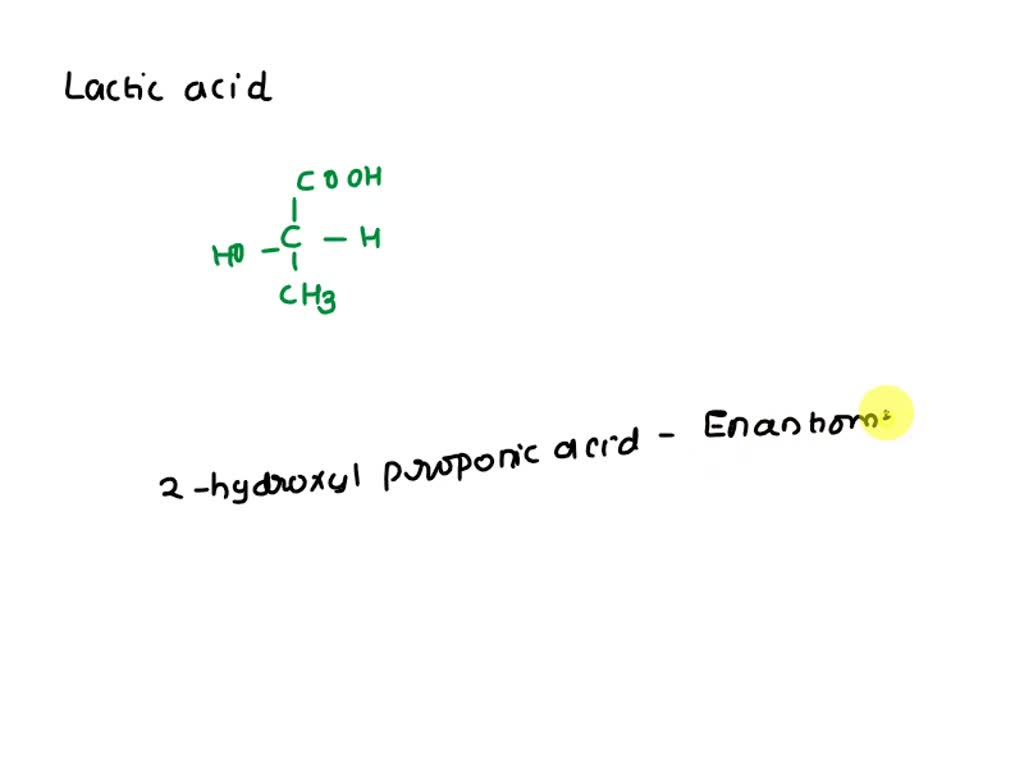 Lactic acid
COOH
HO - C - H
CH3
2-hydroxyl proponic acid - Enantiom